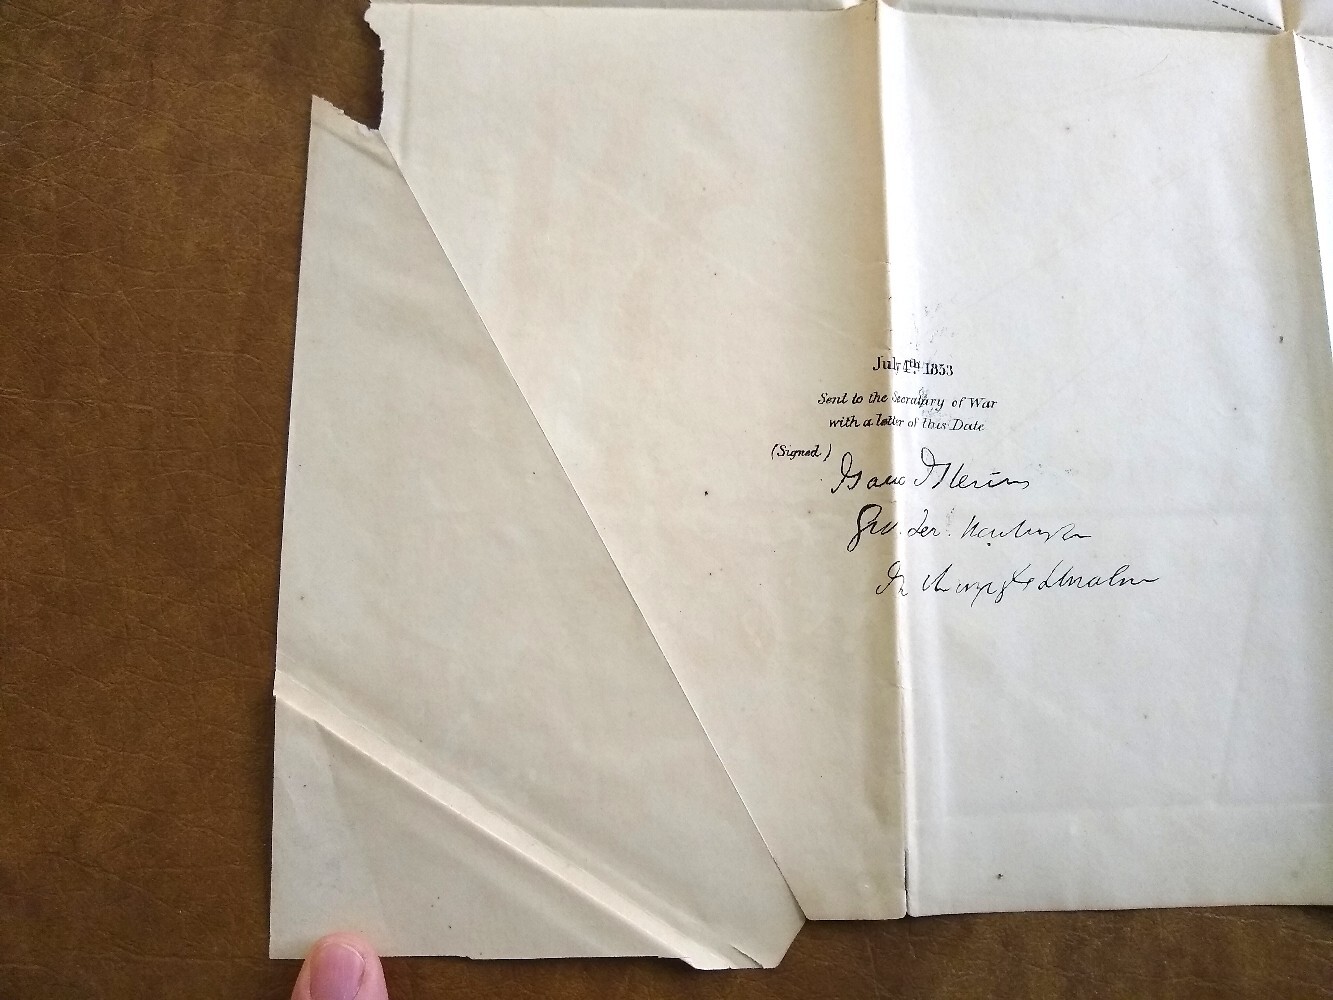 July 4th. 1853
Sent to the Secretary of War
with a letter of this Date
(Signed)
Isaac I Stevens
Gov. Ter. Washington
In charge of Exploration